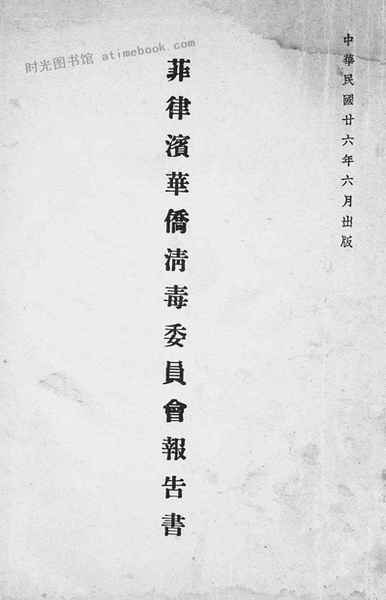 中華民國廿六年六月出版
菲律濱華僑清毒委員會報告書
时光图书馆 atimebook.com